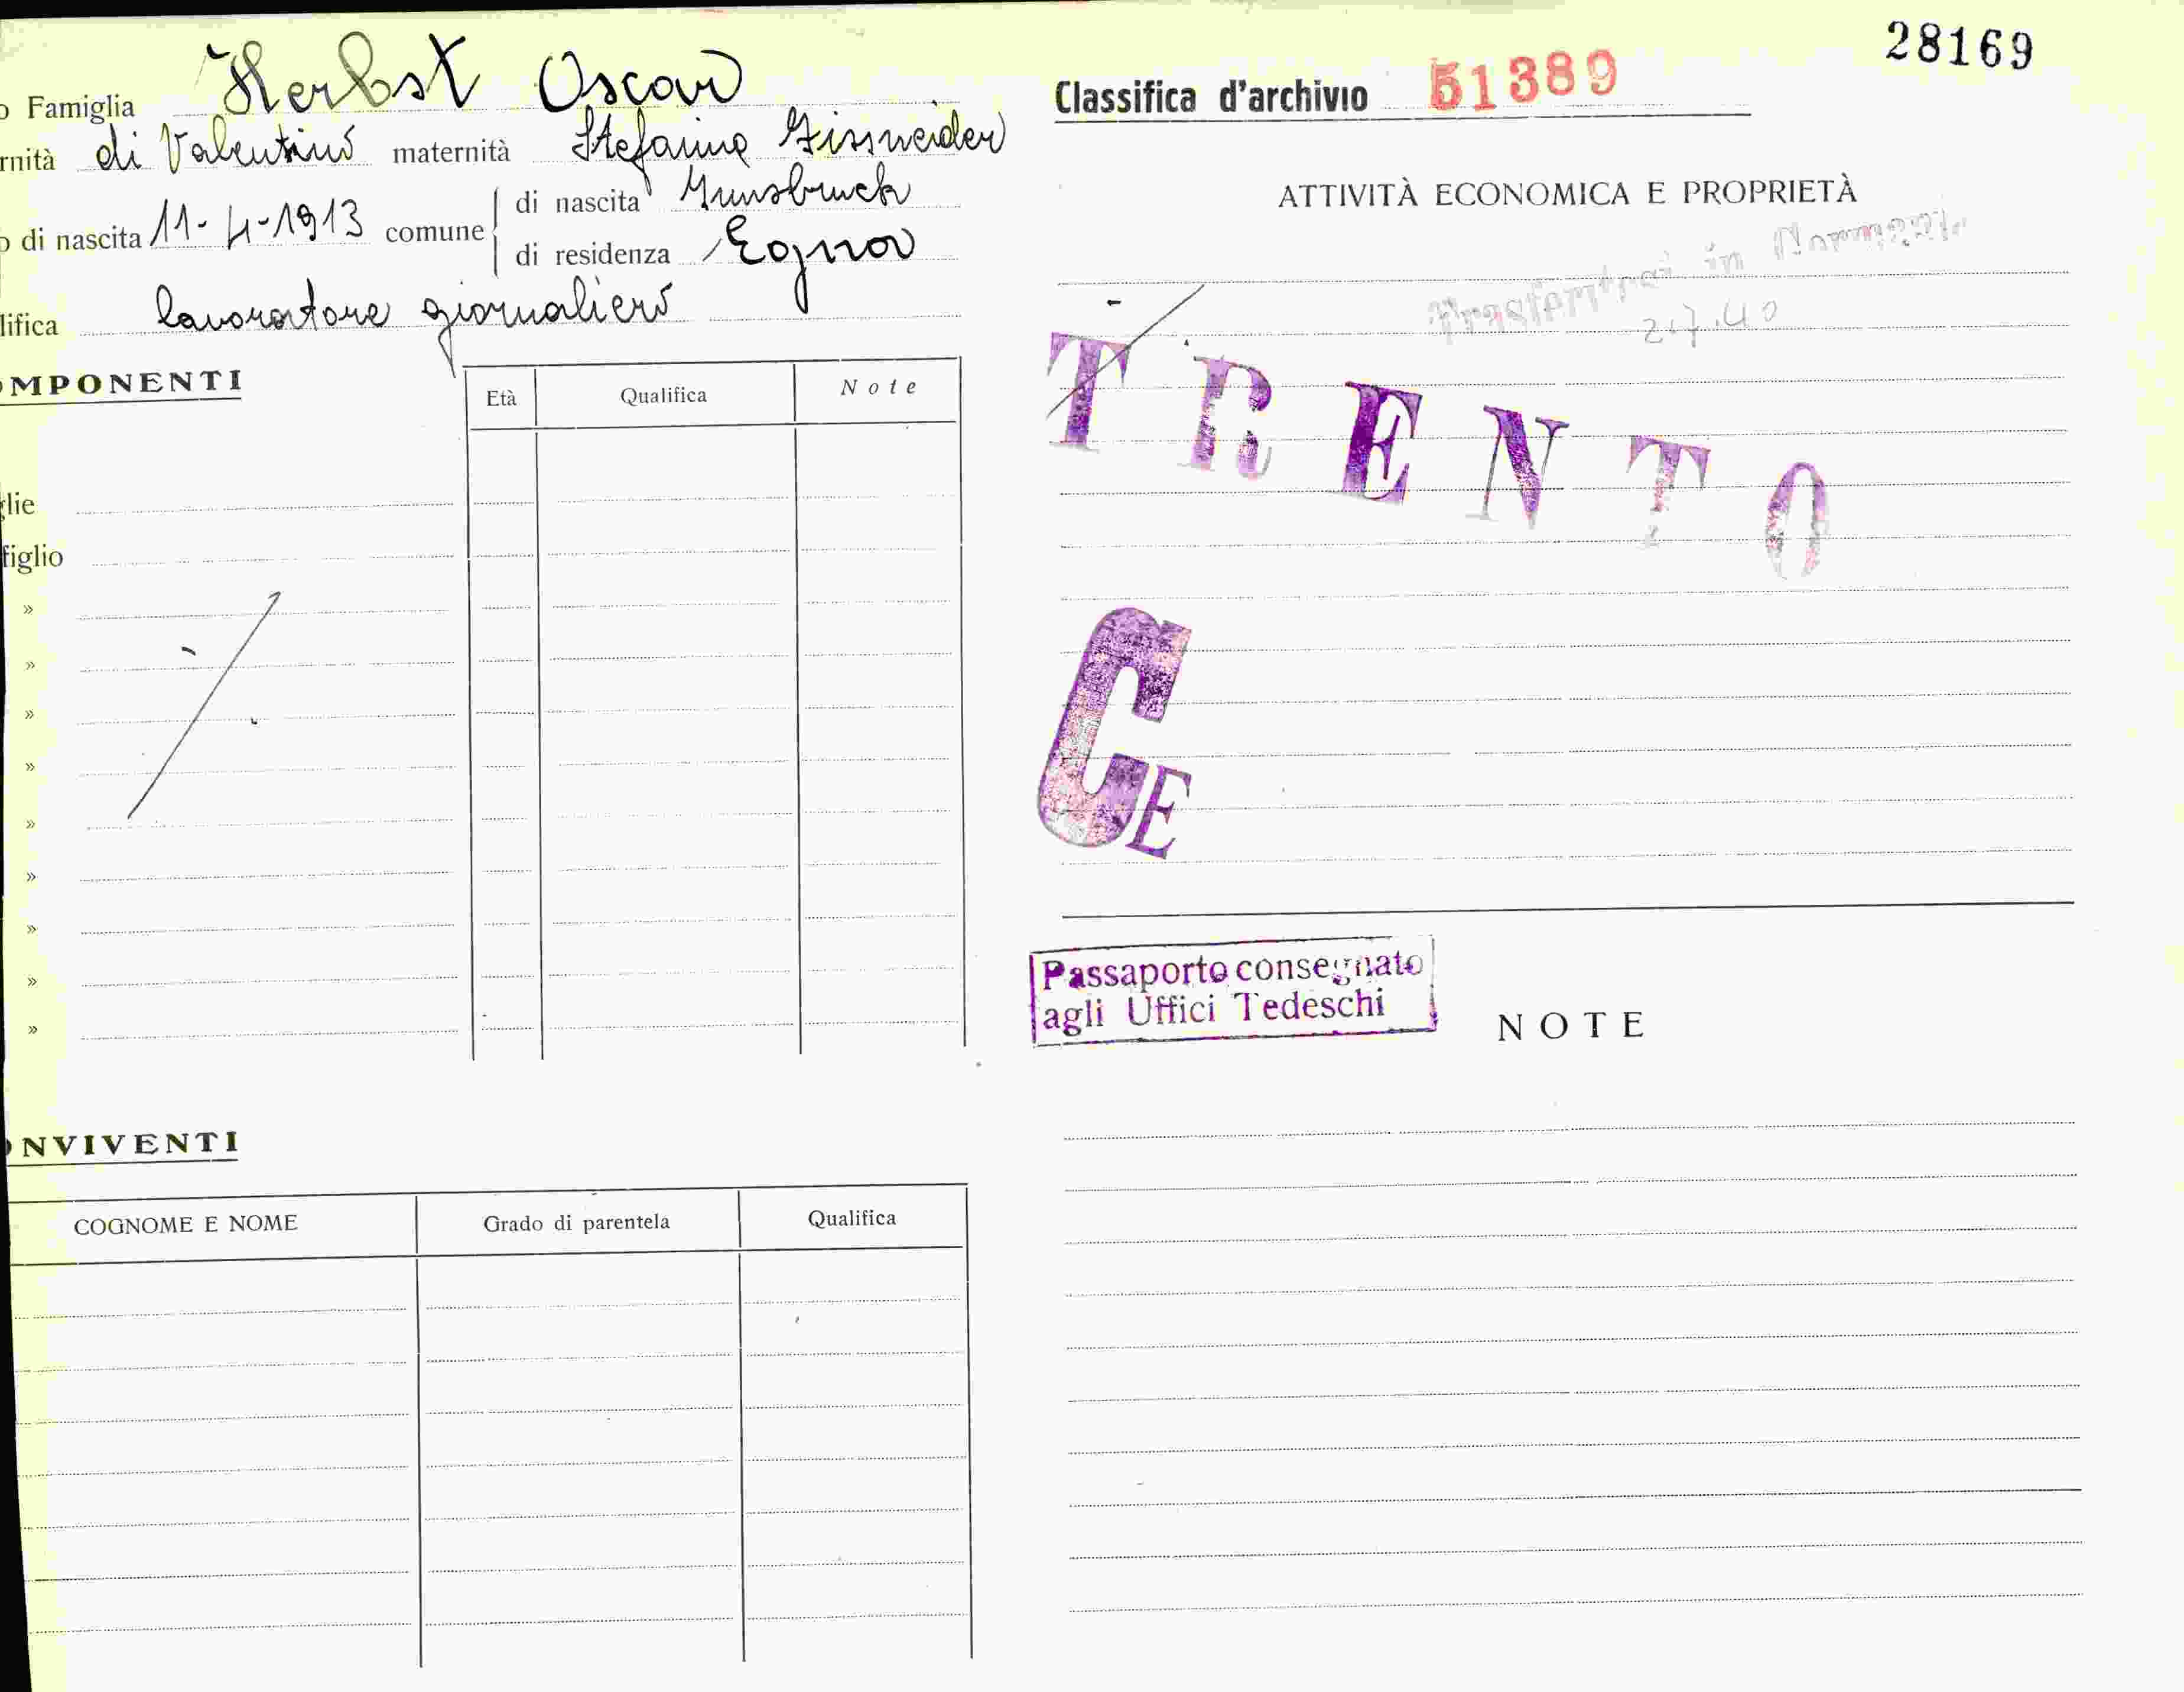 28169
o Famiglia Herbst Oscar
Classifica d'archivio 51389
rnità di Valentino maternità Stefanie
ATTIVITÀ ECONOMICA E PROPRIETÀ
o di nascita 11-4-1913 comune
di nascita Innsbruck
di residenza Egna
in
2.7.40
lifica lavoratore giornaliero
TRENTO
OMPONENTI
Età Qualifica Note
glie
figlio
»
»
»
»
»
»
»
»
»
CE
Passaporto consegnato
agli Uffici Tedeschi
NOTE
ONVIVENTI
COGNOME E NOME Grado di parentela Qualifica